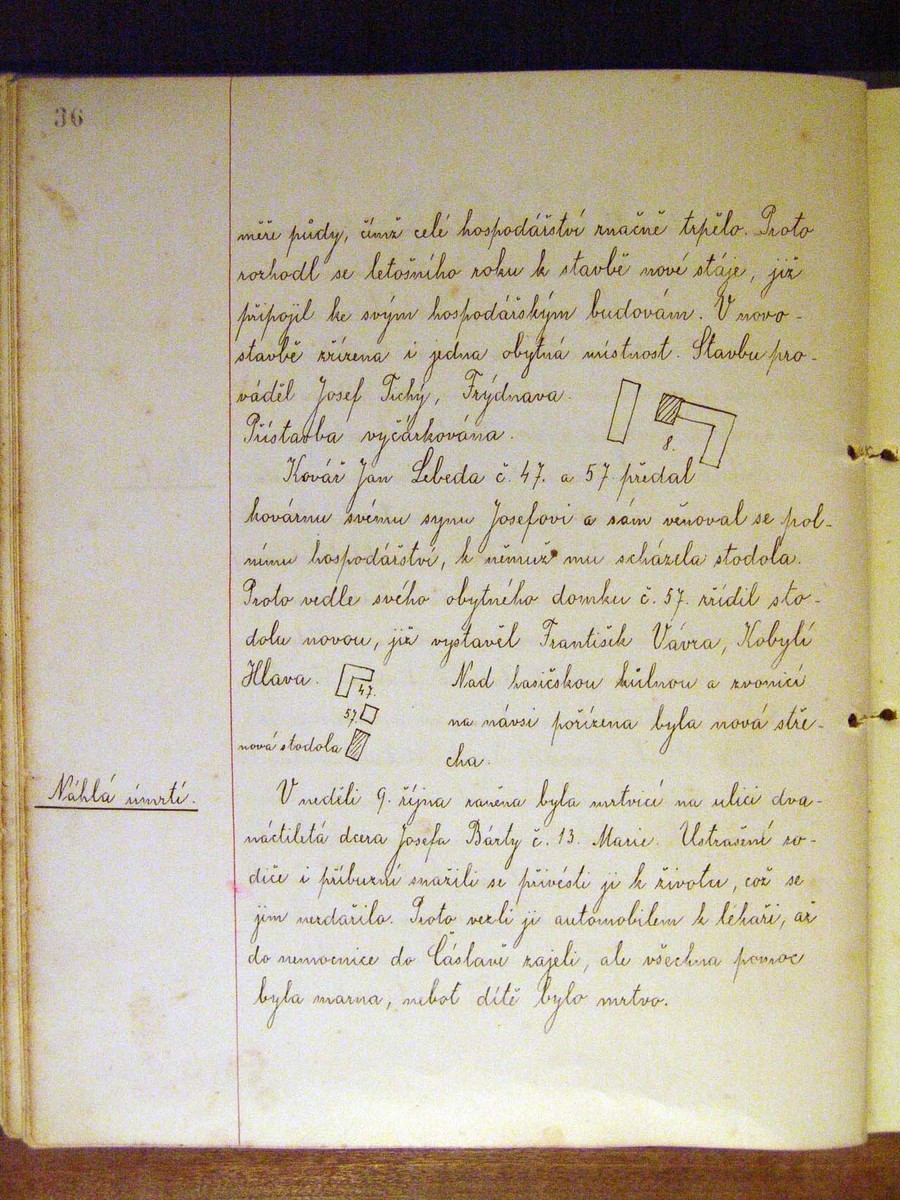 36
měře půdy, čímž celé hospodářství značně trpělo. Proto
rozhodl se letošního roku k stavbě nové stáje, již
připojil ke svým hospodářským budovám. V novo-
stavbě zřízena i jedna obytná místnost. Stavbu pro-
váděl Josef Tichý, Frýdnava.
Přístavba vyčárkována.
8.
Kovář Jan Lebeda č. 47. a 57 předal
kovárnu svému synu Josefovi a sám věnoval se pol-
nímu hospodářství, k němuž mu scházela stodola.
Proto vedle svého obytného domku č. 57. zřídil sto-
dolu novou, již vystavěl František Vávra, Kobylí
Hlava.
47.
57.
nová stodola
Nad hasičskou kůlnou a zvonicí
na návsi pořízena byla nová stře-
cha.
Náhlá úmrtí.
V neděli 9. října raněna byla mrtvicí na ulici dva-
náctiletá dcera Josefa Bárty č. 13. Marie. Ustrašení ro-
diče i příbuzní snažili se přivésti ji k životu, což se
jim nezdařilo. Proto vezli ji automobilem k lékaři, až
do nemocnice do Čáslavě zajeli, ale všechna pomoc
byla marna, neboť dítě bylo mrtvo.